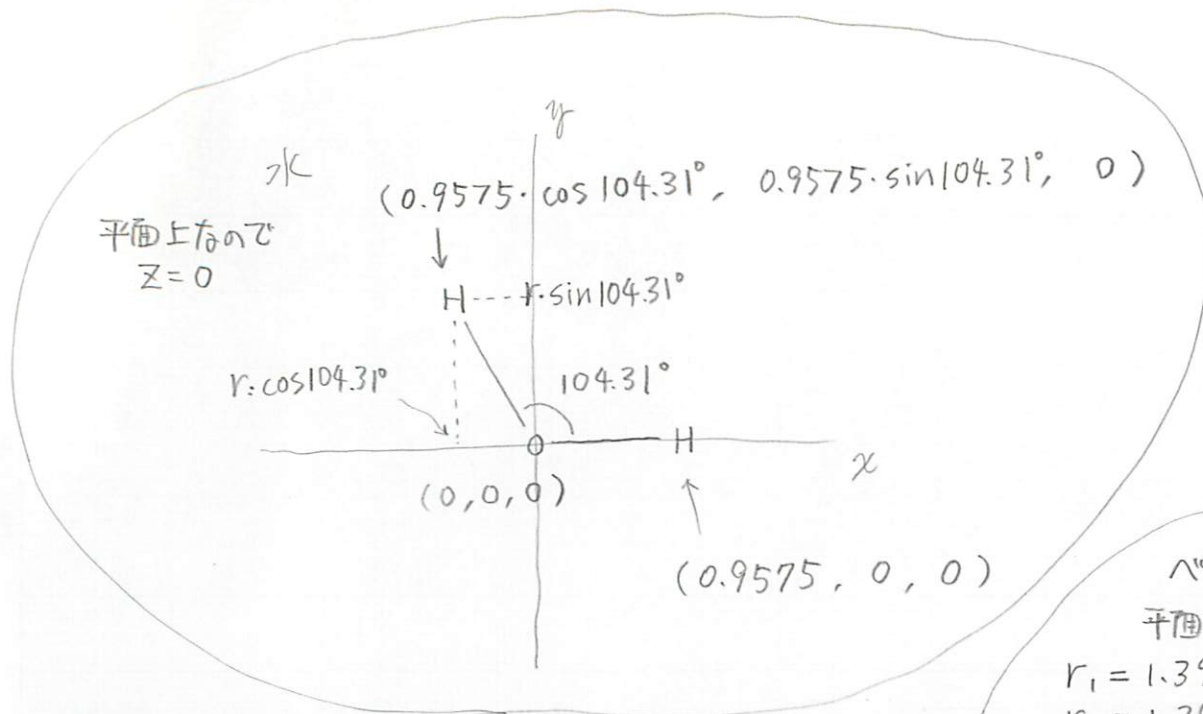 y
水
(0.9575·cos104.31°, 0.9575·sin104.31°, 0)
平面上なので
z=0
H
r·sin104.31°
r·cos104.31°
104.31°
O
H
x
(0,0,0)
(0.9575, 0, 0)
ベ
平面
r₁ = 1.39